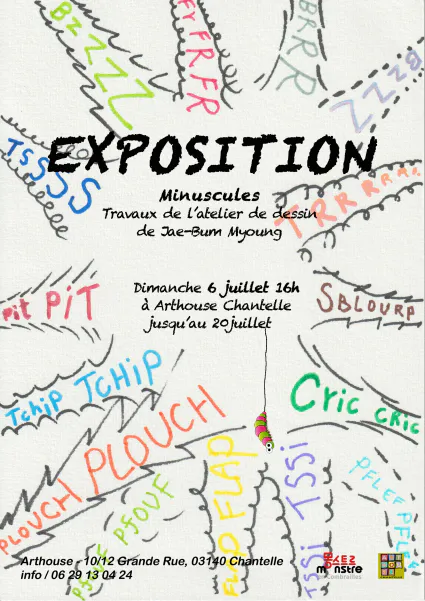 BZZZZZ
FYFRFR
BRRRR
ZZZBZ
EXPOSITION
TSSSSS
Minuscules
Travaux de l'atelier de dessin
de Jae-Bum Myoung
TRRRRRR
Dimanche 6 juillet 16h
à Arthouse Chantelle
jusqu'au 20juillet
pit PiT
SBLOURP
TCHiP TCHiP
CRiC CRiC
PLOUCH PLOUCH
PJOUF PJOUF
FLAP FLAP
TSSi TSSi
PFLEF PFLEF
Arthouse - 10/12 Grande Rue, 03140 Chantelle
info / 06 29 13 04 24
m nstre
Combrailles